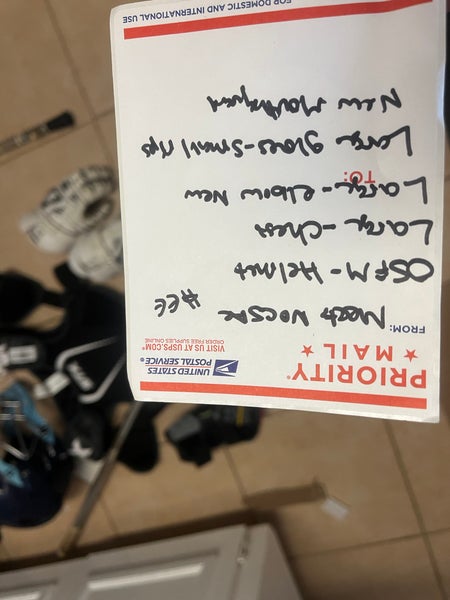 PRIORITY®
★ MAIL ★
UNITED STATES
POSTAL SERVICE®
VISIT US AT USPS.COM®
ORDER FREE SUPPLIES ONLINE
FROM:
Meets NOCSAE
#EE
OSFM - Helmet
Large - Chest
TO:
Large - elbow New
Large gloves - small rips
New Mouthguard
FOR DOMESTIC AND INTERNATIONAL USE